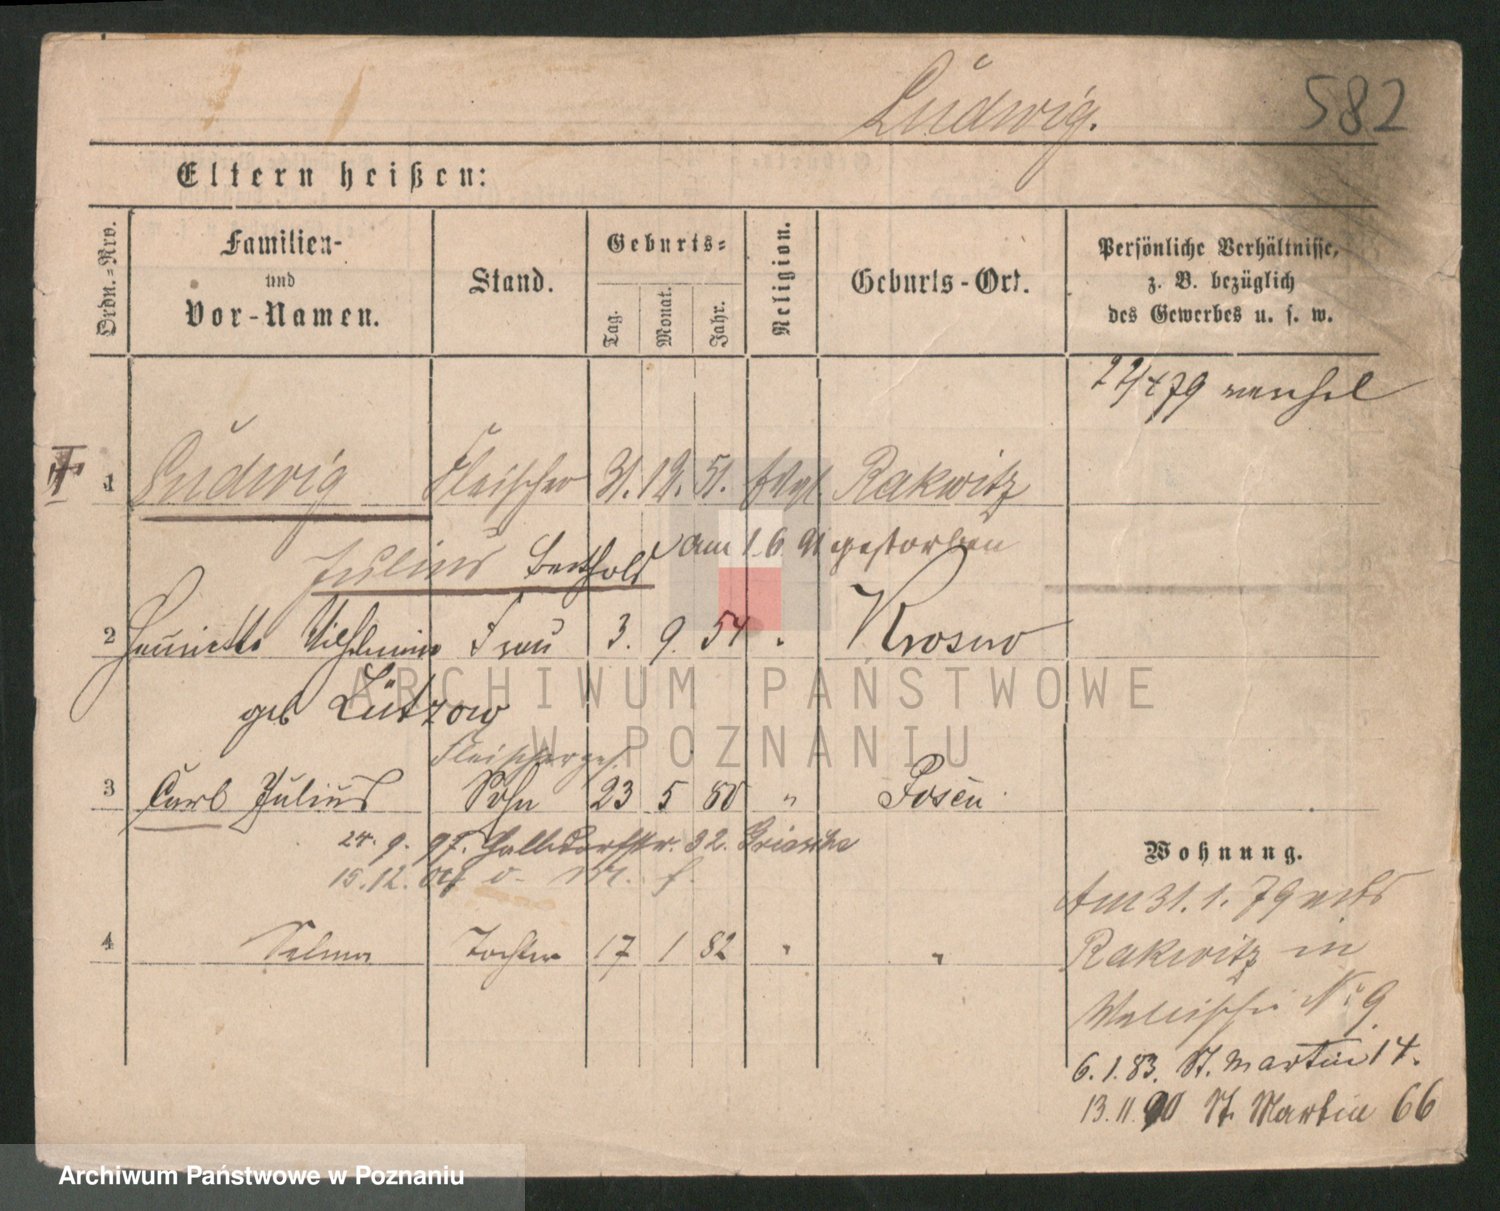 Ludwig.
582
Eltern heißen:
Ordn.-Nro.
Familien-
und
Vor-Namen.
Stand.
Geburts-
Tag.
Monat.
Jahr.
Religion.
Geburts-Ort.
Persönliche Verhältnisse,
z. B. bezüglich
des Gewerbes u. s. w.
22/ 79
1 Ludwig Fleischer 31. 12. 51. Evgl. Rakwitz
Julius Berthold am 1.6. 91 gestorben
2 Henriette Wilhelmine Frau 3. 9. 54 " Krosno
geb Lützow
ARCHIWUM PAŃSTWOWE
W POZNANIU
Fleischerges.
3 Carl Julius Sohn 23 5 80 " Posen
24. 9. 97. 32.
15.12.
4 Selma Tochter 17 1 82 " "
Wohnung.
Am 31. 1. 79
Rakwitz in
Wallischei No 9
6. 1. 83. St. Martin 14.
13. 11. 90 St. Martin 66
Archiwum Państwowe w Poznaniu